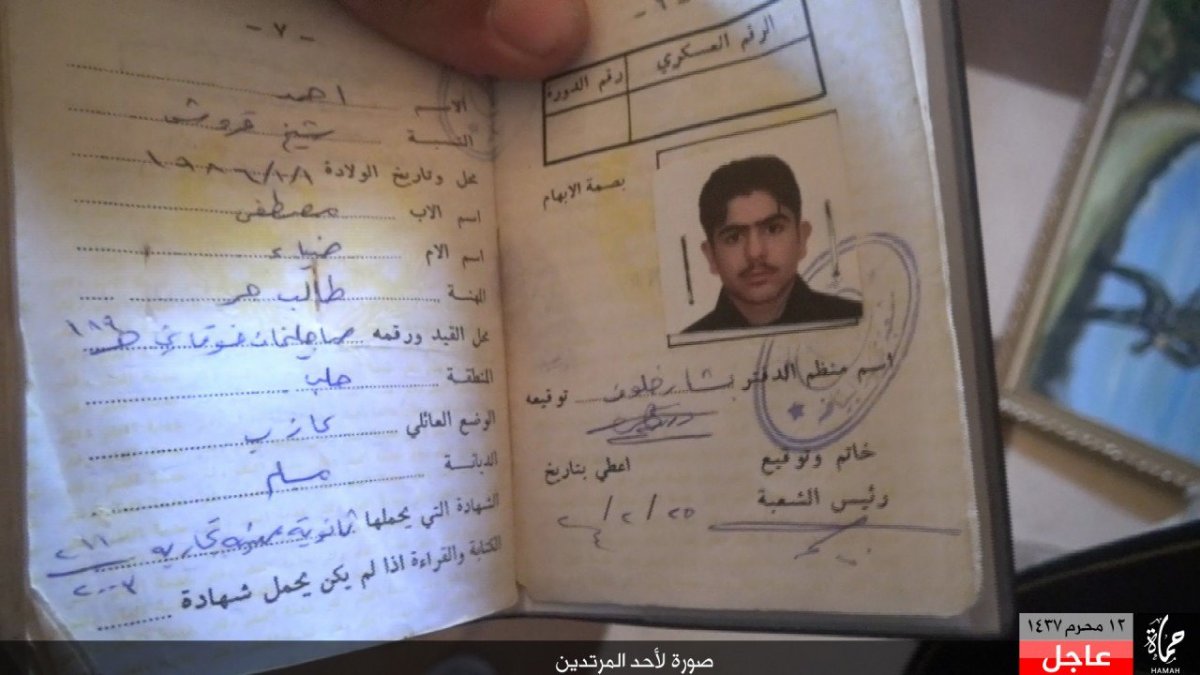 - ٦ -
الرقم العسكري
رقم الدورة
بصمة الابهام
اسم منظم الدفتر بشار خلوف توقيعه
خاتم وتوقيع
اعطي بتاريخ
رئيس الشعبة
- ٧ -
الاسم احمد
النسبة شيخ قروش
محل وتاريخ الولادة
اسم الاب مصطفى
اسم الام ضياء
المهنة طالب حر
محل القيد ورقمه
المنطقة حلب
الوضع العائلي عازب
الديانة مسلم
الشهادة التي يحملها ثانوية
٢٠٠٣
الكتابة والقراءة اذا لم يكن يحمل شهادة
١٢ محرم ١٤٣٧
عاجل
حماة
HAMAH
صورة لأحد المرتدين